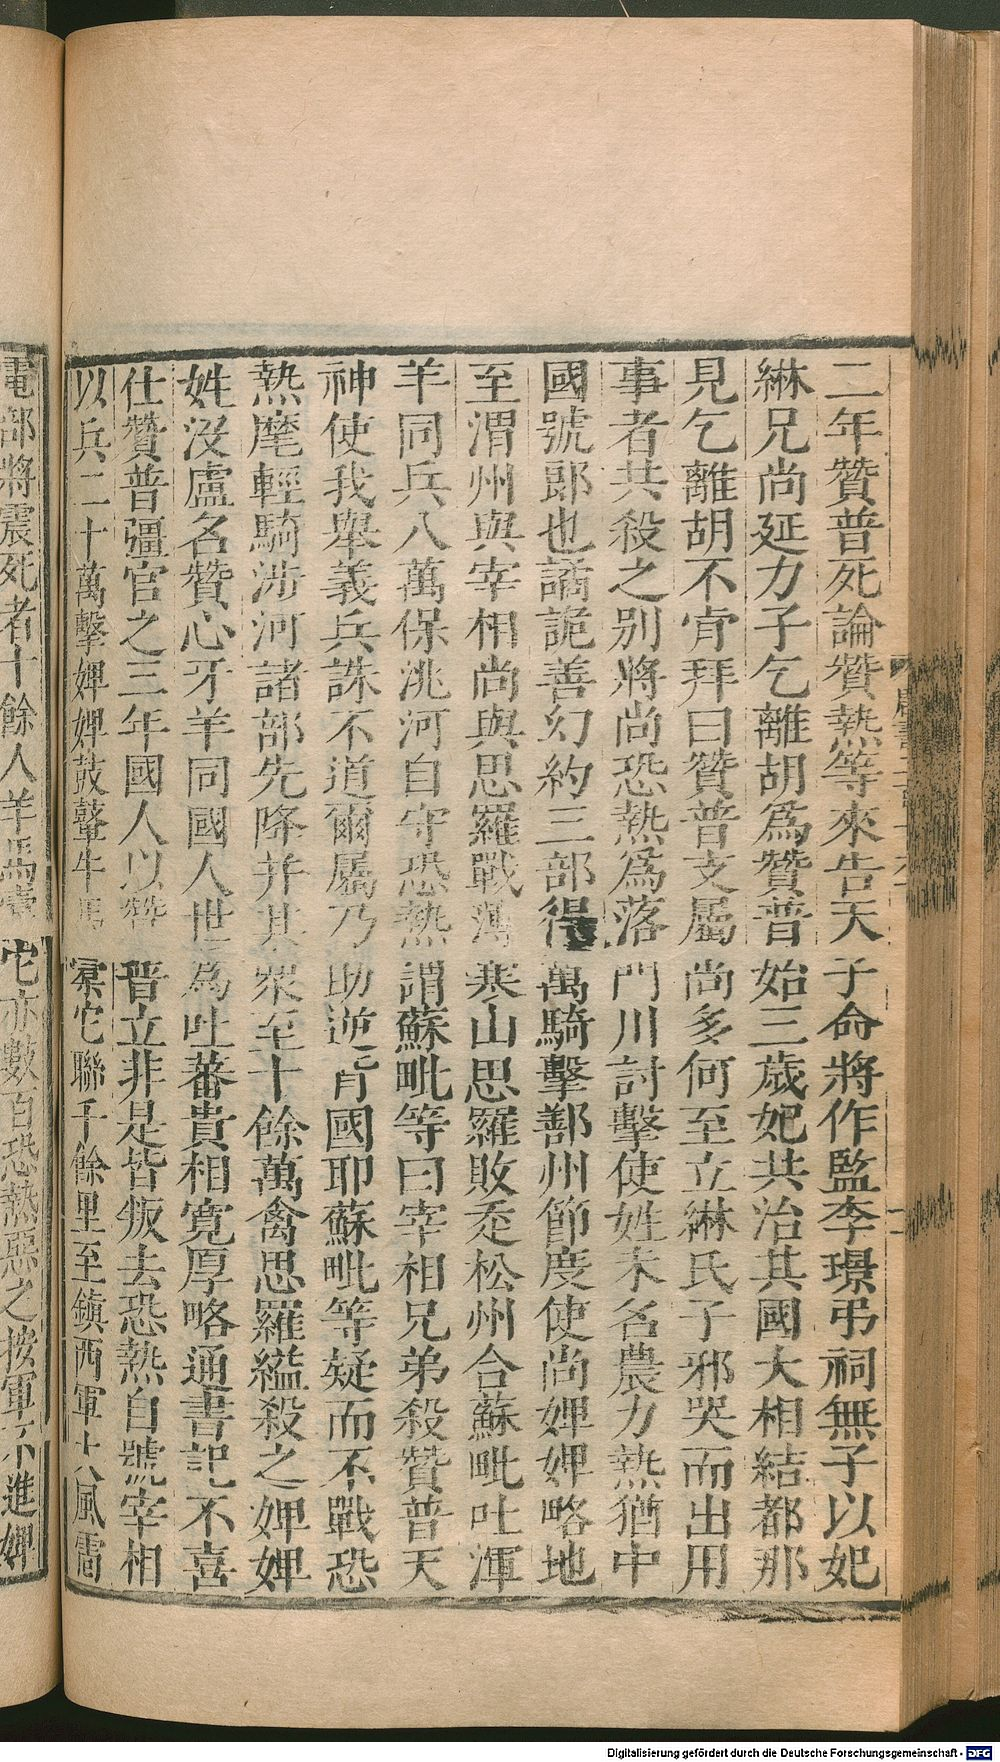 二年贊普死論贊熱等來告天子命將作監李璟弔祠無子以妃
綝兄尚延力子乞離胡爲贊普始三歲妃共治其國大相結都那
見乞離胡不肯拜曰贊普支屬尚多何至立綝氏子邪哭而出用
事者共殺之別將尚恐熱爲落門川討擊使姓末名農力熱猶中
國號郎也譎詭善幻約三部得萬騎擊鄯州節度使尚婢婢略地
至渭州與宰相尚與思羅戰薄寒山思羅敗走松州合蘇毗吐渾
羊同兵八萬保洮河自守恐熱謂蘇毗等曰宰相兄弟殺贊普天
神使我舉義兵誅不道爾屬乃助逆背國耶蘇毗等疑而不戰恐
熱麾輕騎涉河諸部先降并其衆至十餘萬禽思羅縊殺之婢婢
姓沒盧名贊心牙羊同國人世爲吐蕃貴相寬厚略通書記不喜
仕贊普彊官之三年國人以贊普立非是皆叛去恐熱自號宰相
以兵二十萬擊婢婢鼓鼙牛馬橐它聯千餘里至鎮西軍大風雷
電部將震死者十餘人羊馬橐它亦數百恐熱惡之按軍不進婢
Digitalisierung gefördert durch die Deutsche Forschungsgemeinschaft - DFG